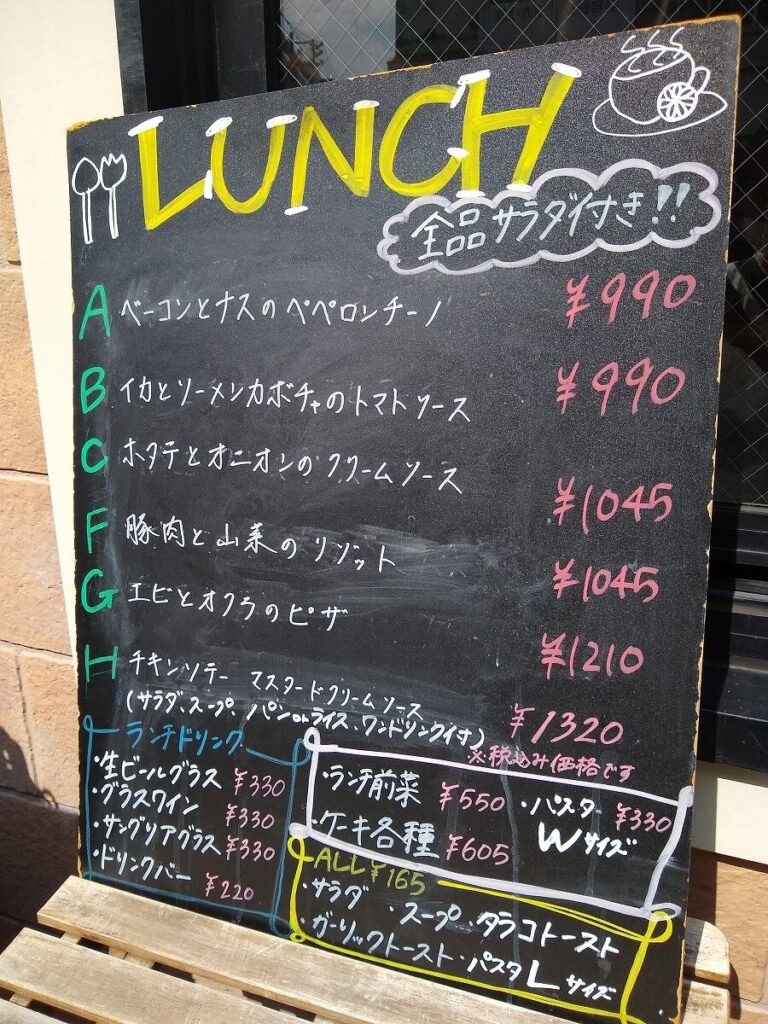 LUNCH
全品サラダ付き!!
A ベーコンとナスのペペロンチーノ ¥990
B イカとソーメンカボチャのトマトソース ¥990
C ホタテとオニオンのクリームソース ¥1045
F 豚肉と山菜のリゾット ¥1045
G エビとオクラのピザ ¥1210
H チキンソテー マスタードクリームソース ¥1320
(サラダ、スープ、パンorライス、ワンドリンク付)
※税込み価格です
ランチドリンク
・生ビールグラス ¥330
・グラスワイン ¥330
・サングリアグラス ¥330
・ドリンクバー ¥220
・ランチ前菜 ¥550
・ケーキ各種 ¥605
・パスタ ¥330
Wサイズ
ALL ¥165
・サラダ ・スープ ・タラコトースト
・ガーリックトースト ・パスタLサイズ